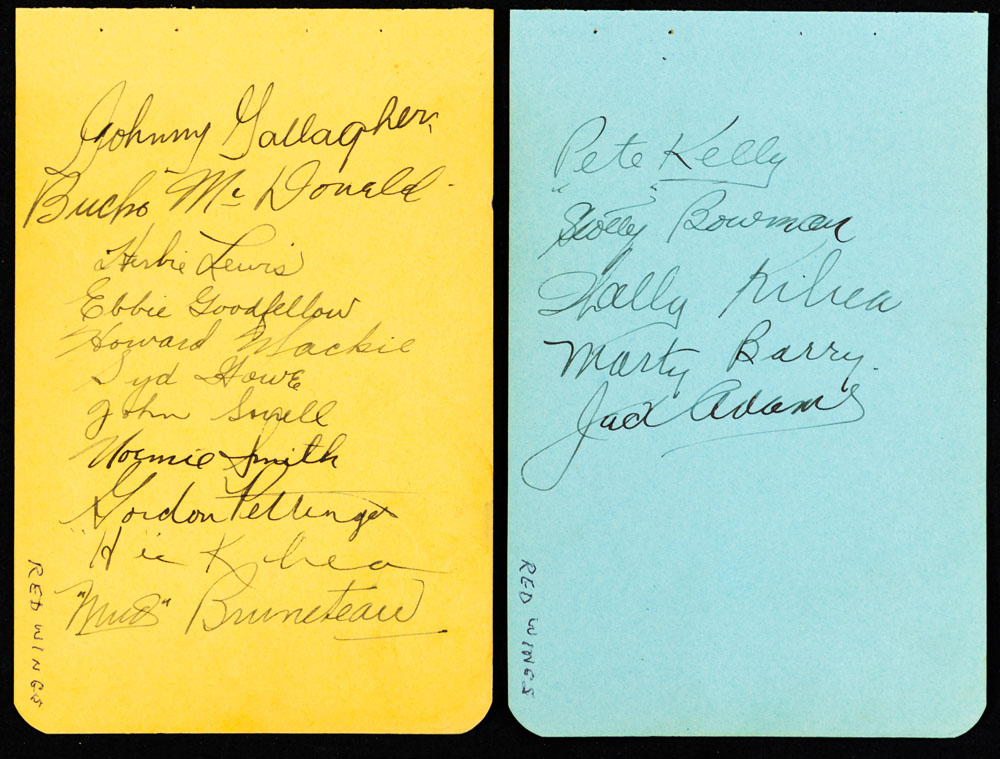 Johnny Gallagher
"Bucko" McDonald
Herbie Lewis
Ebbie Goodfellow
Howard Mackie
Syd Howe
John Sorrell
Normie Smith
Gordon Pettinger
"Hec" Kilrea
"Mud" Bruneteau
RED WINGS
Pete Kelly
"Scotty" Bowman
Wally Kilrea
Marty Barry
Jack Adams
RED WINGS